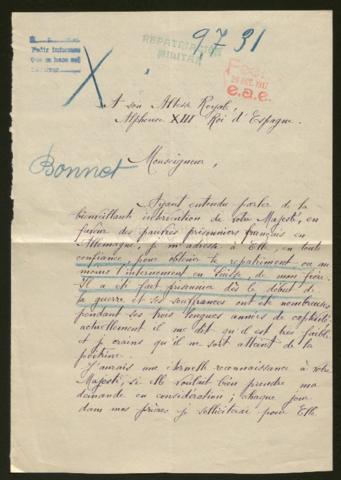 9731
REPATRIACIÓN
MILITAR
Pedir informes
que se hace del
OCT. 1917
e.a.e.
A son Altesse Royale,
Alphonse XIII Roi d'Espagne.
Bonnet
Monseigneur,
Ayant entendu parler de la
bienveillante intervention de votre Majesté, en
faveur des pauvres prisonniers français en
Allemagne, je m'adresse à Elle, en toute
confiance, pour obtenir le repatriment, ou au
moins l'internement en Suisse de mon frère.
Il a été fait prisonnier dès le début de
la guerre, et ses souffrances ont été nombreuses
pendant ses trois longues années de captivité,
actuellement il me dit qu'il est très faible,
et je crains qu'il ne soit atteint de la
poitrine.
J'aurais une éternelle reconnaissance à votre
Majesté, si Elle voulait bien prendre ma
demande en considération; chaque jour
dans mes prières je solliciterai pour Elle